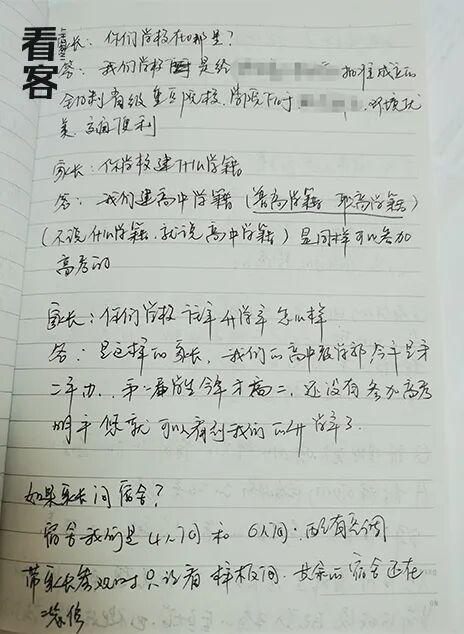 看客
家长：你们学校在哪里？
答：我们学校是经 批准成立的
全日制省级重点院校，学院位于 ，环境优
美，交通便利
家长：你学校建什么学籍
答：我们建高中学籍（普高学籍 职高学籍）
（不说什么学籍，就说高中学籍）是同样可以参加
高考的
家长：你们学校 升学率怎么样
答：是这样的家长，我们的高中教学部今年是第
二年办，第一届学生今年才高二，还没有参加高考
明年您就可以看到我们的升学率了.
如果家长问宿舍？
宿舍我们是4人间和6人间：都有空调
带家长参观时只说看样板间，其余的宿舍还在
装修